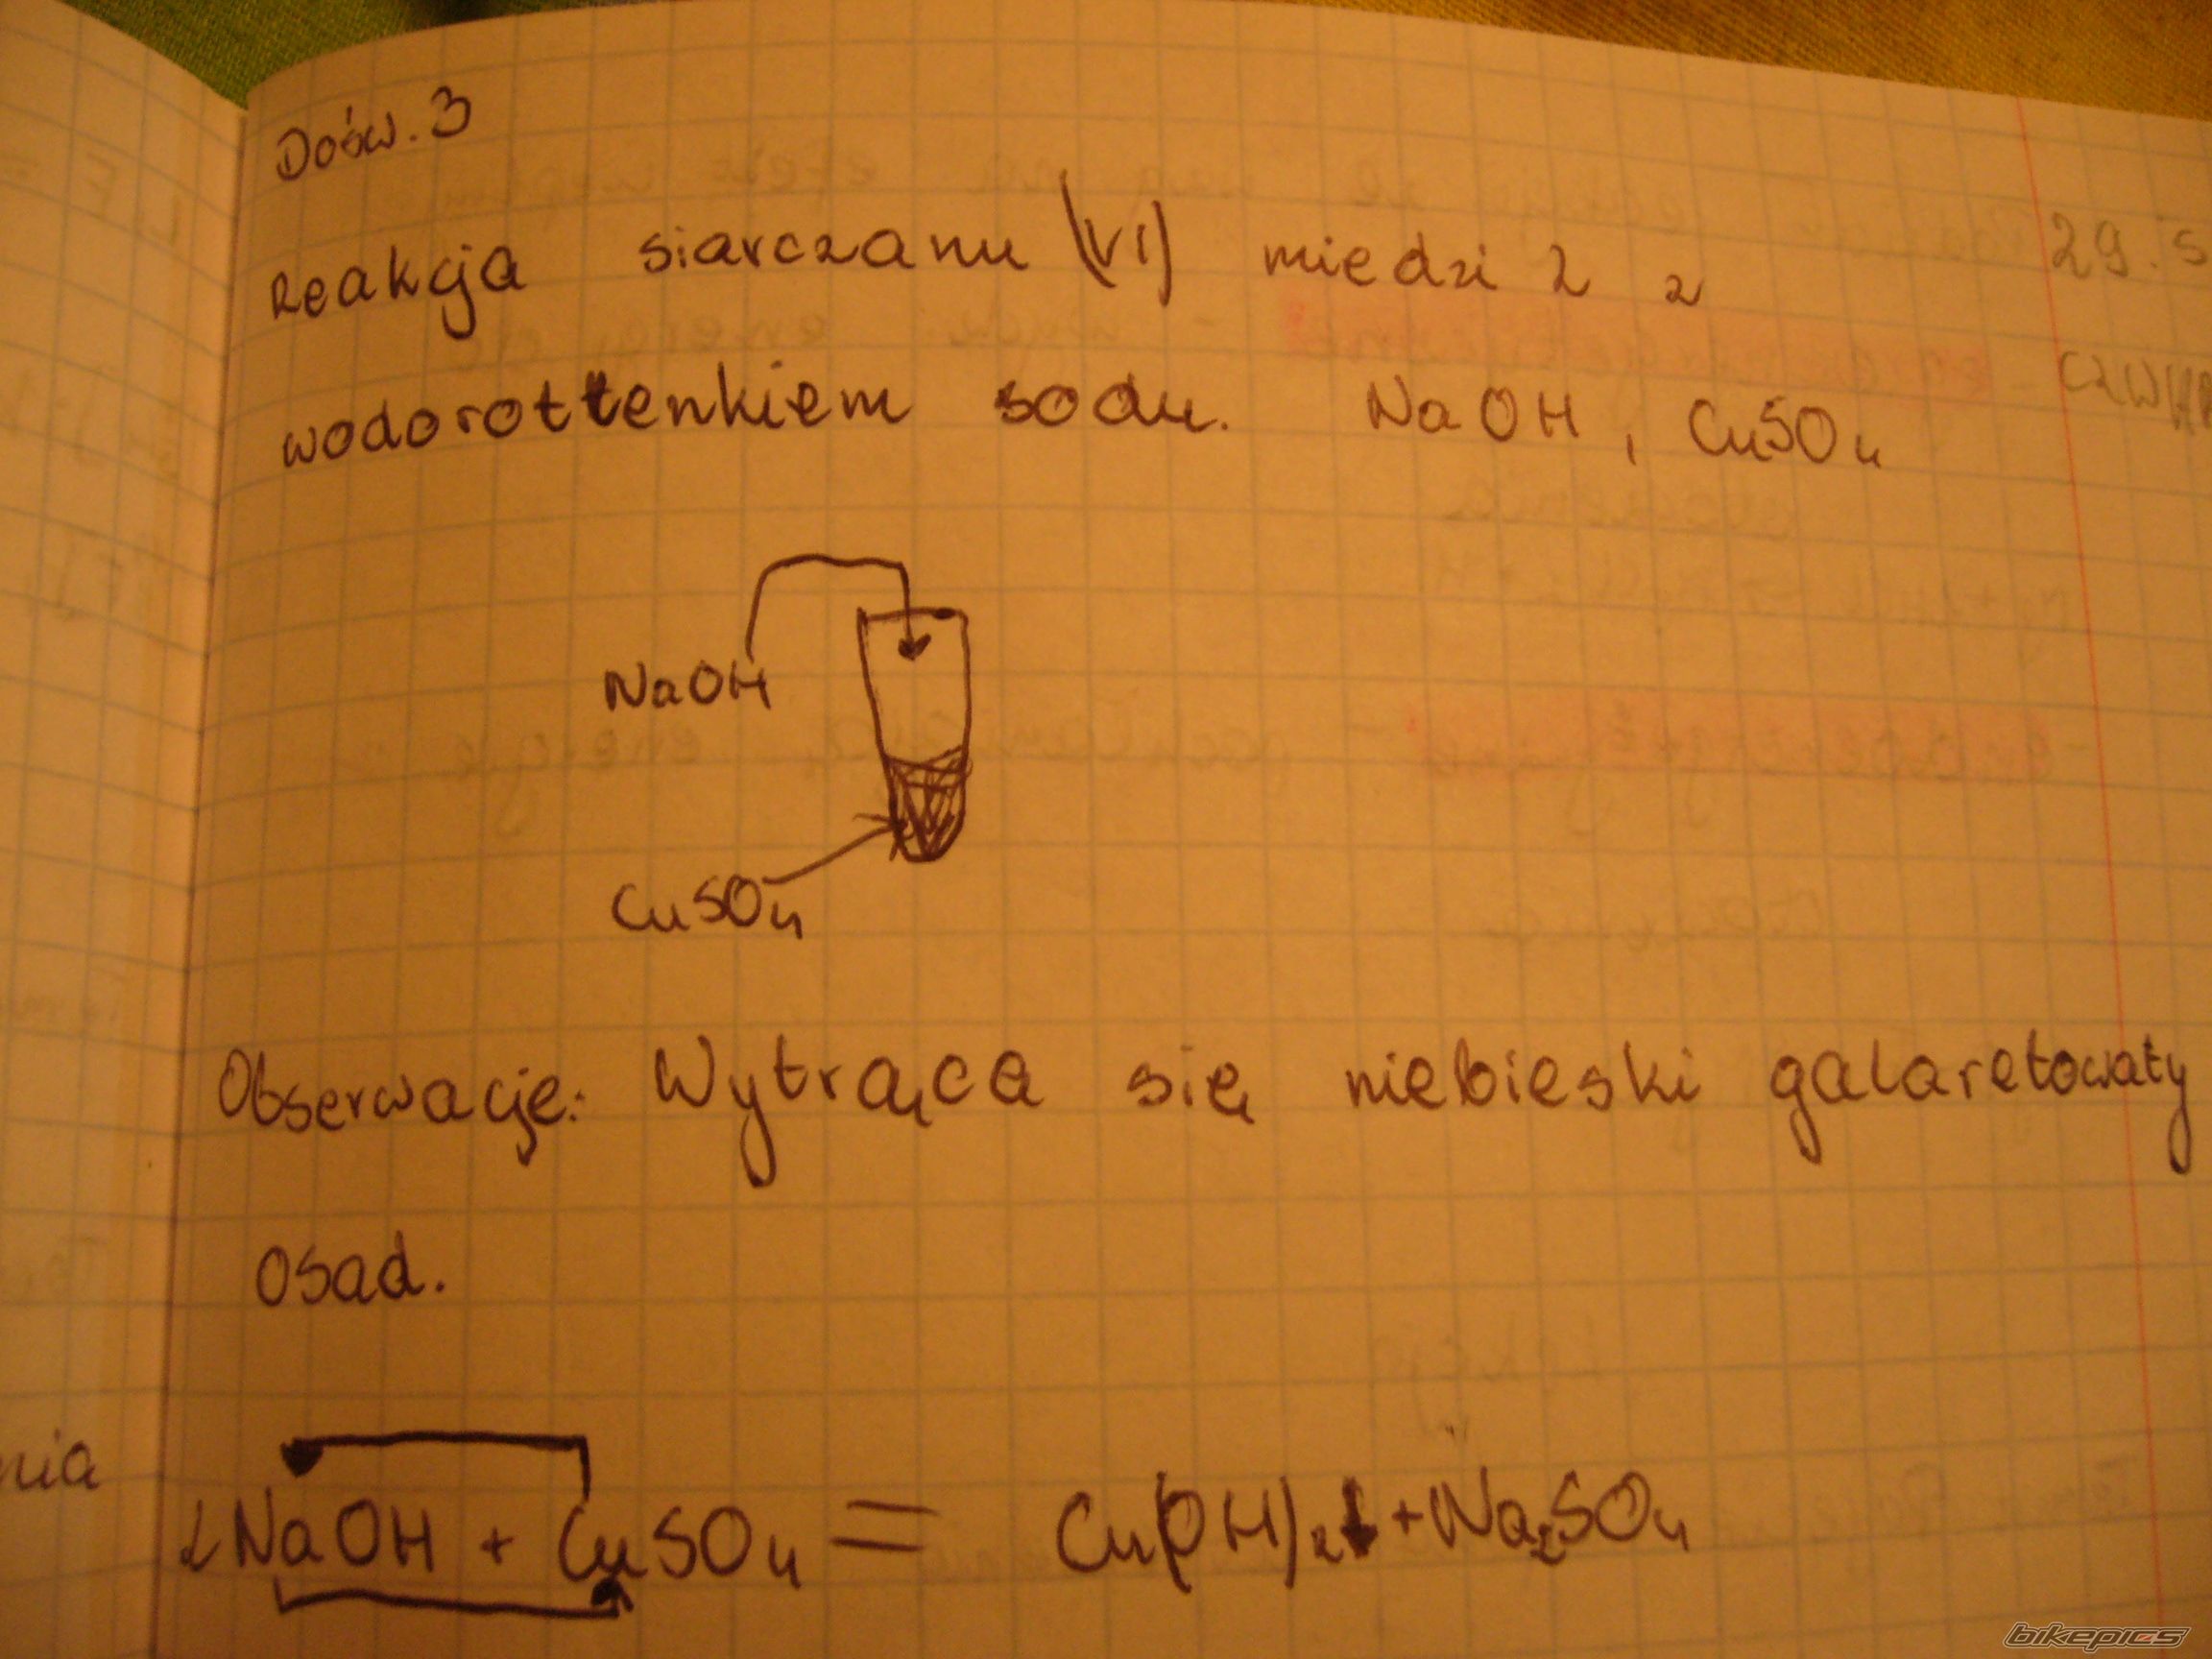 Dośw. 3
reakcja siarczanu (VI) miedzi 2 z
wodorotlenkiem sodu. NaOH, CuSO4
29.
NaOH
CuSO4
Obserwacje: Wytrąca się niebieski galaretowaty
osad.
nia
2NaOH + CuSO4 = Cu(OH)2↓ + Na2SO4
bikepics